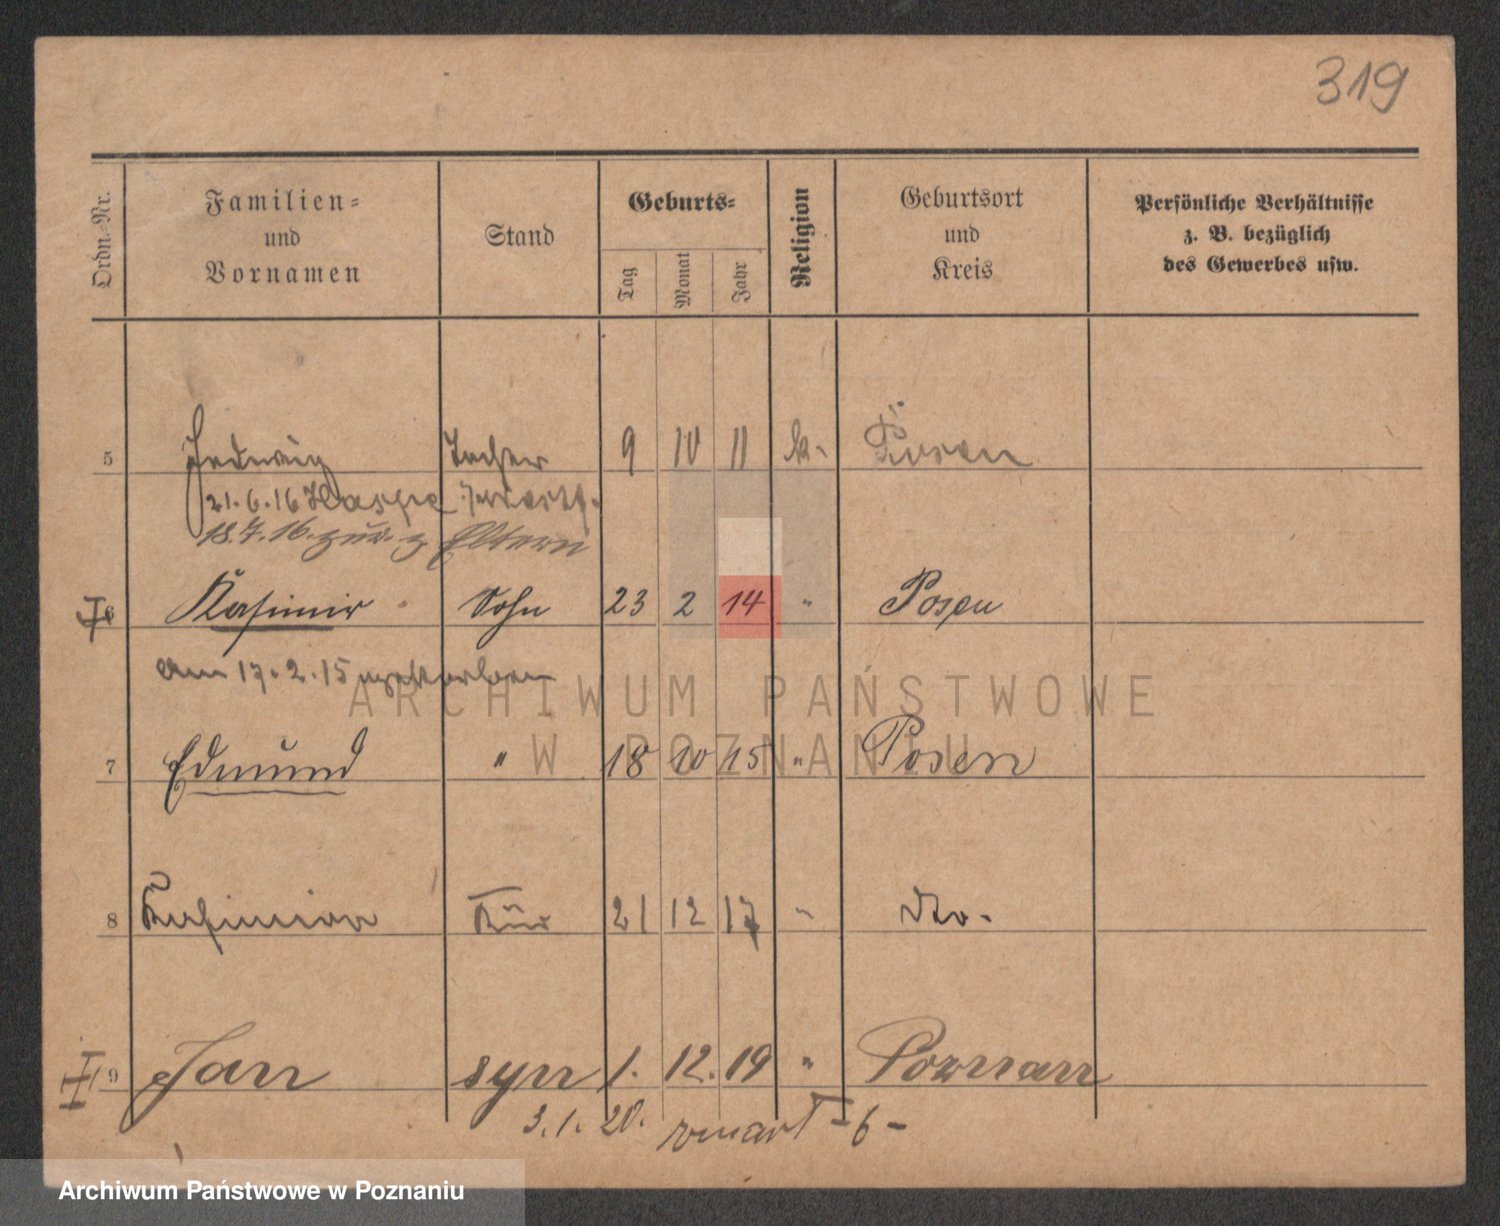 319
Ordn.-Nr.
Familien-
und
Vornamen
Stand
Geburts-
Tag
Monat
Jahr
Religion
Geburtsort
und
Kreis
Persönliche Verhältnisse
z. B. bezüglich
des Gewerbes usw.
5 Hedwig Tochter 9 10 11 k. Posen
21.6.16 Haspe i/Westf.
18.7.16. zur. z Eltern
6 Kasimir Sohn 23 2 14 " Posen
am 17.2.15 gestorben
7 Edmund " 18 10 15 " Posen
8 21 12 17 " dto.
9 Jan syn 1. 12. 19 " Poznan
3.1.20. zmarł I-6-
ARCHIWUM PAŃSTWOWE
W POZNANIU
Archiwum Państwowe w Poznaniu